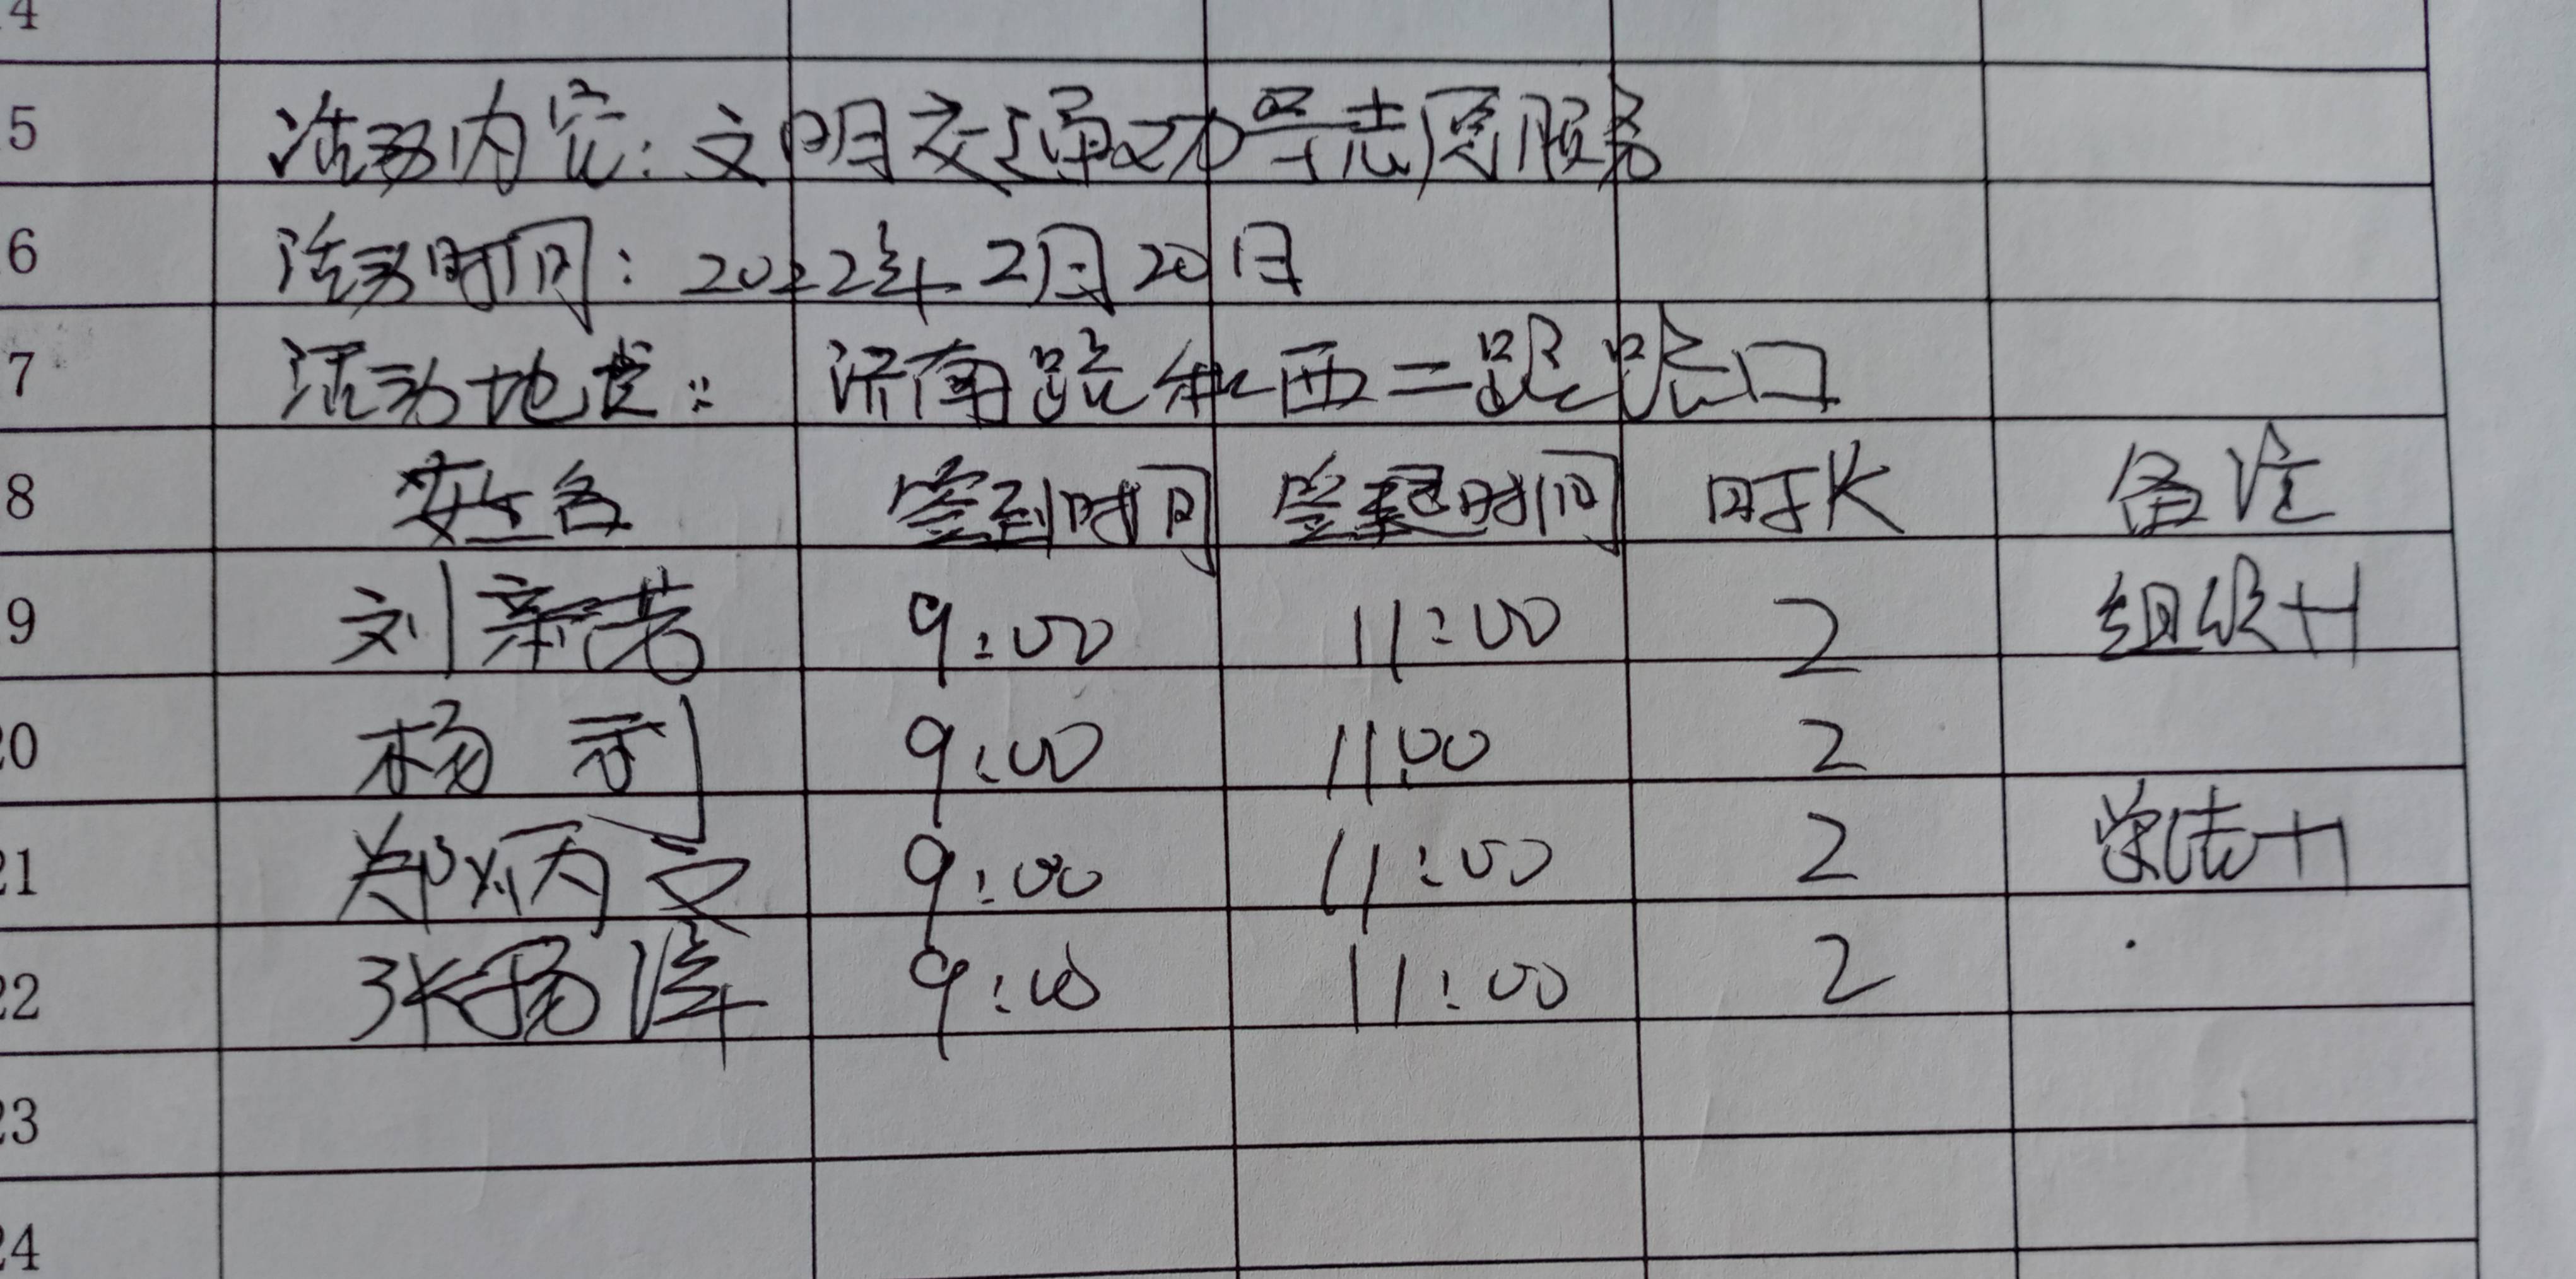 4
5 活动内容：文明交通劝导志愿服务
6 活动时间：2022年2月20日
7 活动地点：济南路和西二路路口
8 姓名 签到时间 签退时间 时长 备注
9 刘新芳 9:00 11:00 2 组织+1
20 杨 9:00 11:00 2
21 郑炳文 9:00 11:00 2 +1
22 张扬泽 9:00 11:00 2
23
24